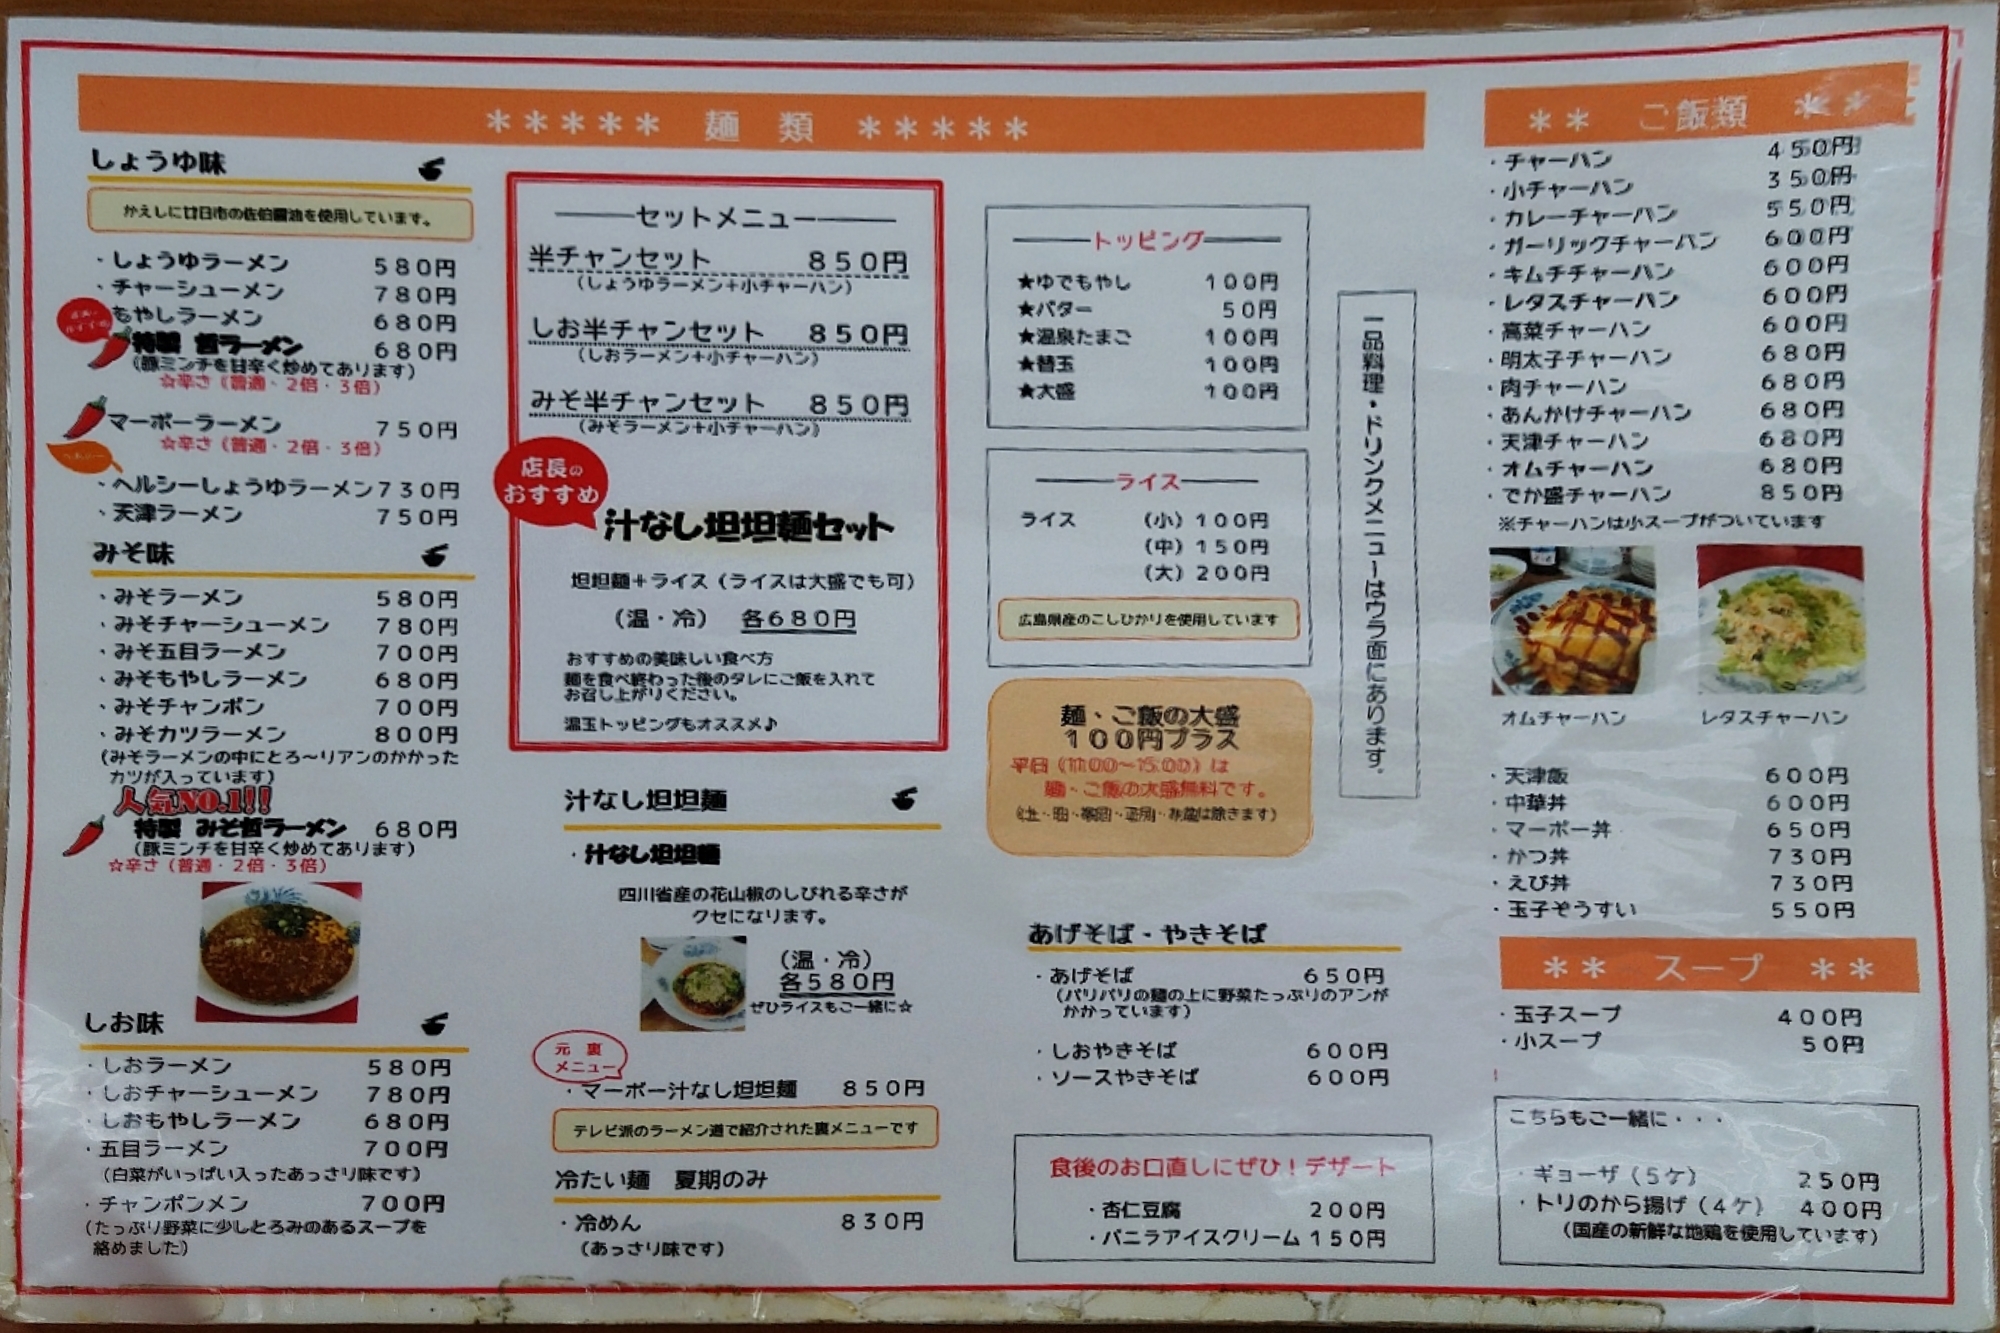 ＊＊＊＊＊ 麺 類 ＊＊＊＊＊
しょうゆ味
かえしに廿日市の佐伯醤油を使用しています。
・しょうゆラーメン 580円
・チャーシューメン 780円
もやしラーメン 680円
特製 哲ラーメン 680円
(豚ミンチを甘辛く炒めてあります)
☆辛さ(普通・2倍・3倍)
マーボーラーメン 750円
☆辛さ(普通・2倍・3倍)
・ヘルシーしょうゆラーメン730円
・天津ラーメン 750円
みそ味
・みそラーメン 580円
・みそチャーシューメン 780円
・みそ五目ラーメン 700円
・みそもやしラーメン 680円
・みそチャンポン 700円
・みそカツラーメン 800円
(みそラーメンの中にとろ〜リアンのかかった
カツが入っています)
人気NO.1!!
特製 みそ哲ラーメン 680円
(豚ミンチを甘辛く炒めてあります)
☆辛さ(普通・2倍・3倍)
しお味
・しおラーメン 580円
・しおチャーシューメン 780円
・しおもやしラーメン 680円
・五目ラーメン 700円
(白菜がいっぱい入ったあっさり味です)
・チャンポンメン 700円
(たっぷり野菜に少しとろみのあるスープを
絡めました)
セットメニュー
半チャンセット 850円
(しょうゆラーメン+小チャーハン)
しお半チャンセット 850円
(しおラーメン+小チャーハン)
みそ半チャンセット 850円
(みそラーメン+小チャーハン)
店長の
おすすめ
汁なし坦坦麺セット
坦坦麺+ライス(ライスは大盛でも可)
(温・冷) 各680円
おすすめの美味しい食べ方
麺を食べ終わった後のタレにご飯を入れて
お召し上がりください。
温玉トッピングもオススメ♪
汁なし坦坦麺
・汁なし坦坦麺
四川省産の花山椒のしびれる辛さが
クセになります。
(温・冷)
各580円
ぜひライスもご一緒に☆
元 裏
メニュー
・マーボー汁なし坦坦麺 850円
テレビ派のラーメン道で紹介された裏メニューです
冷たい麺 夏期のみ
・冷めん 830円
(あっさり味です)
トッピング
★ゆでもやし 100円
★バター 50円
★温泉たまご 100円
★替玉 100円
★大盛 100円
ライス
ライス (小)100円
(中)150円
(大)200円
広島県産のこしひかりを使用しています
麺・ご飯の大盛
100円プラス
平日(11:00〜15:00)は
麺・ご飯の大盛無料です。
一品料理・ドリンクメニューはウラ面にあります。
あげそば・やきそば
・あげそば 650円
(パリパリの麺の上に野菜たっぷりのアンが
かかっています)
・しおやきそば 600円
・ソースやきそば 600円
食後のお口直しにぜひ!デザート
・杏仁豆腐 200円
・バニラアイスクリーム 150円
＊＊ ご飯類 ＊＊
・チャーハン 450円
・小チャーハン 350円
・カレーチャーハン 550円
・ガーリックチャーハン 600円
・キムチチャーハン 600円
・レタスチャーハン 600円
・高菜チャーハン 600円
・明太子チャーハン 680円
・肉チャーハン 680円
・あんかけチャーハン 680円
・天津チャーハン 680円
・オムチャーハン 680円
・でか盛チャーハン 850円
※チャーハンは小スープがついています
オムチャーハン レタスチャーハン
・天津飯 600円
・中華丼 600円
・マーボー丼 650円
・かつ丼 730円
・えび丼 730円
・玉子ぞうすい 550円
＊＊ スープ ＊＊
・玉子スープ 400円
・小スープ 50円
こちらもご一緒に・・・
・ギョーザ(5ケ) 250円
・トリのから揚げ(4ケ) 400円
(国産の新鮮な地鶏を使用しています)